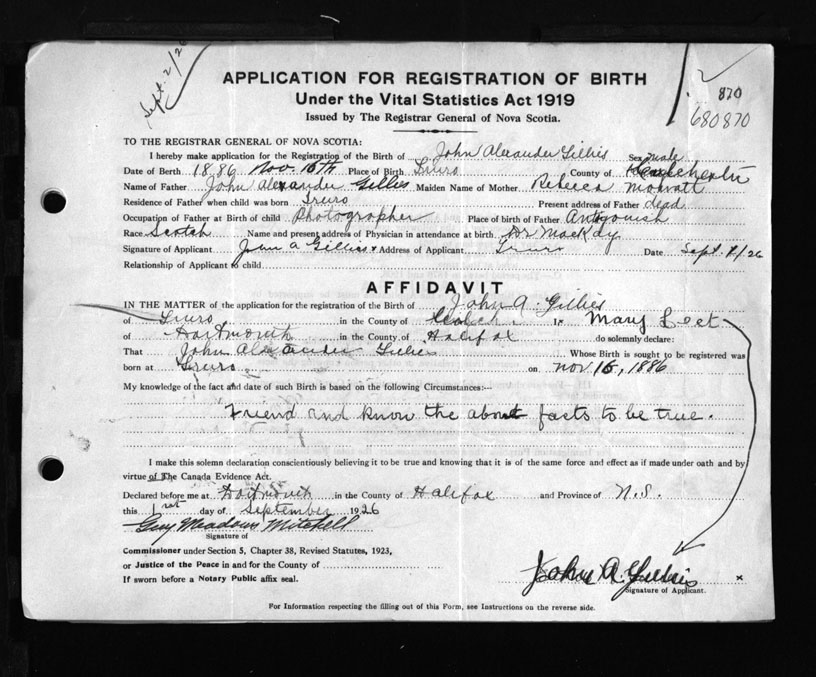 Sept. 2/26
870
680870
APPLICATION FOR REGISTRATION OF BIRTH
Under the Vital Statistics Act 1919
Issued by The Registrar General of Nova Scotia.
TO THE REGISTRAR GENERAL OF NOVA SCOTIA:
I hereby make application for the Registration of the Birth of John Alexander Gillies Sex male
Date of Birth 1886 Nov. 16th Place of Birth Truro County of Colchester
Name of Father John Alexander Gillies Maiden Name of Mother Rebecca
Residence of Father when child was born Truro Present address of Father dead
Occupation of Father at Birth of child Photographer Place of birth of Father Antigonish
Race Scotch Name and present address of Physician in attendance at birth Dr MacKay
Signature of Applicant John A Gillies x Address of Applicant Truro Date Sept. 1/26
Relationship of Applicant to child
AFFIDAVIT
IN THE MATTER of the application for the registration of the Birth of John A. Gillies
of Truro in the County of Colch. I, Mary Leet
of Dartmouth in the County of Halifax do solemnly declare:
That John Alexander Gillies Whose Birth is sought to be registered was
born at Truro on Nov. 16, 1886
My knowledge of the fact and date of such Birth is based on the following Circumstances:—
Friend and know the above facts to be true.
I make this solemn declaration conscientiously believing it to be true and knowing that it is of the same force and effect as if made under oath and by
virtue of The Canada Evidence Act.
Declared before me at Dartmouth in the County of Halifax and Province of N.S.
this 1st day of September 1926
Guy Meadows Mitchell
Signature of
Commissioner under Section 5, Chapter 38, Revised Statutes, 1923,
or Justice of the Peace in and for the County of
If sworn before a Notary Public affix seal.
John A. Gillies x
Signature of Applicant.
For Information respecting the filling out of this Form, see Instructions on the reverse side.